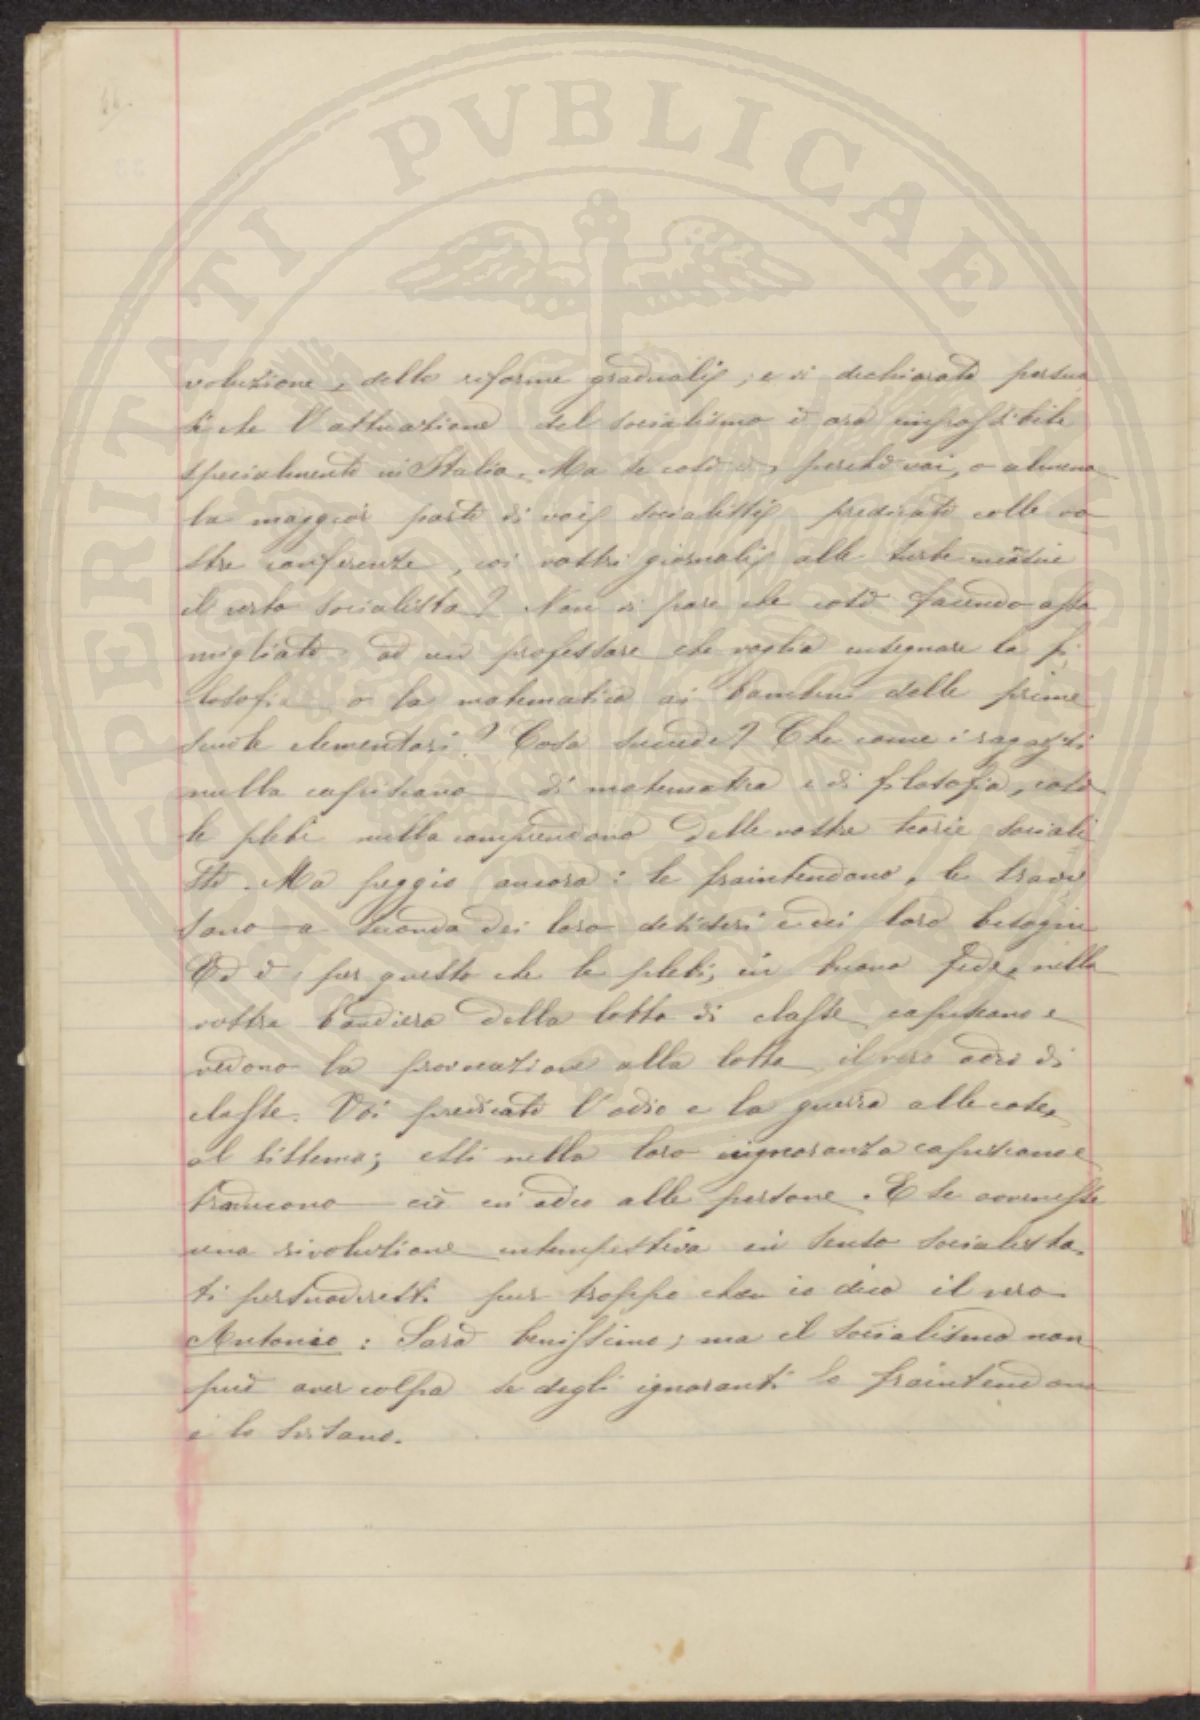 66.
PROSPERITATI PUBLICAE
voluzione, delle riforme graduali; e vi dichiarate persua
si che l'attuazione del socialismo è ora impossibile
specialmente in Italia. Ma se così è, perché voi, o almeno
la maggior parte di voi socialisti predicate colle vo
stre conferenze, coi vostri giornali alle turbe
il verbo socialista? Non vi pare che così facendo asso
migliate ad un professore che voglia insegnare la fi
losofia o la matematica ai bambini delle prime
scuole elementari? Cosa succede? Che come i ragazzi
nulla capiscono di matematica e di filosofia, così
le plebi nulla comprendono delle vostre teorie sociali
ste. Ma peggio ancora: le fraintendono, le travi
sano a seconda dei loro desideri e dei loro bisogni
Ed è per questo che le plebi, in buona fede, nella
vostra bandiera della lotta di classe capiscono e
vedono la provocazione alla lotta il vero odio di
classe. Voi predicate l'odio e la guerra alle cose,
al sistema; essi nella loro ignoranza capiscono e
traducono ciò in odio alle persone. E se avvenisse
una rivoluzione intempestiva in senso socialista,
ti persuaderesti pur troppo che io dico il vero
Antonio: Sarà benissimo; ma il socialismo non
può aver colpa se degli ignoranti lo fraintendono
e lo svisano.